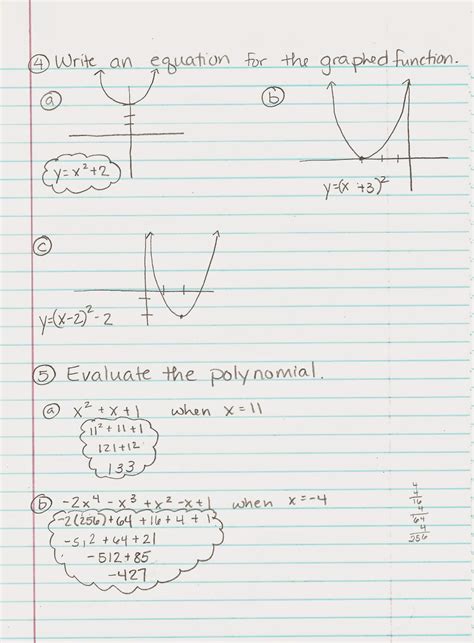 ④ Write an equation for the graphed function.
ⓐ
ⓑ
y=x²+2
y=(x+3)²
ⓒ
y=(x-2)²-2
⑤ Evaluate the polynomial.
ⓐ x² + x + 1 when x = 11
11² + 11 + 1
121 + 12
133
ⓑ -2x⁴ - x³ + x² - x + 1 when x = -4
-2(256) + 64 + 16 + 4 + 1
-512 + 64 + 21
-512 + 85
-427
4
4
16
4
64
4
256